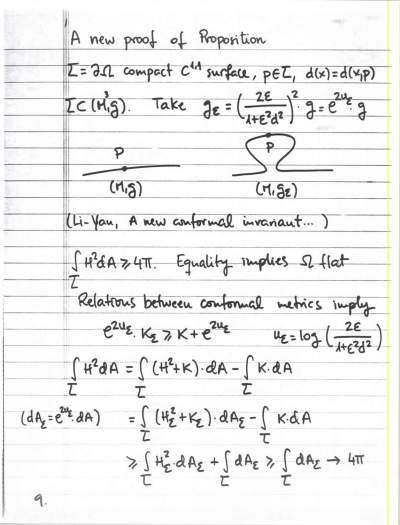 A new proof of Proposition
Σ=∂Ω compact C¹,¹ surface, p∈Σ, d(x)=d(x,p)
Σ⊂(M³,g). Take g_ε = (2ε/(1+ε²d²))²·g = e^{2u_ε}·g
P P
(M,g) (M,g_ε)
(Li-Yau, A new conformal invariant...)
∫_Σ H²dA ≥ 4π. Equality implies Ω flat
Relations between conformal metrics imply
e^{2u_ε}·K_ε ≥ K + e^{2u_ε} u_ε = log(2ε/(1+ε²d²))
∫_Σ H²dA = ∫_Σ (H²+K)·dA − ∫_Σ K·dA
(dA_ε=e^{2u_ε}·dA) = ∫_Σ (H_ε²+K_ε)·dA_ε − ∫_Σ K·dA
≥ ∫_Σ H_ε²·dA_ε + ∫_Σ dA_ε ≥ ∫_Σ dA_ε → 4π
9.